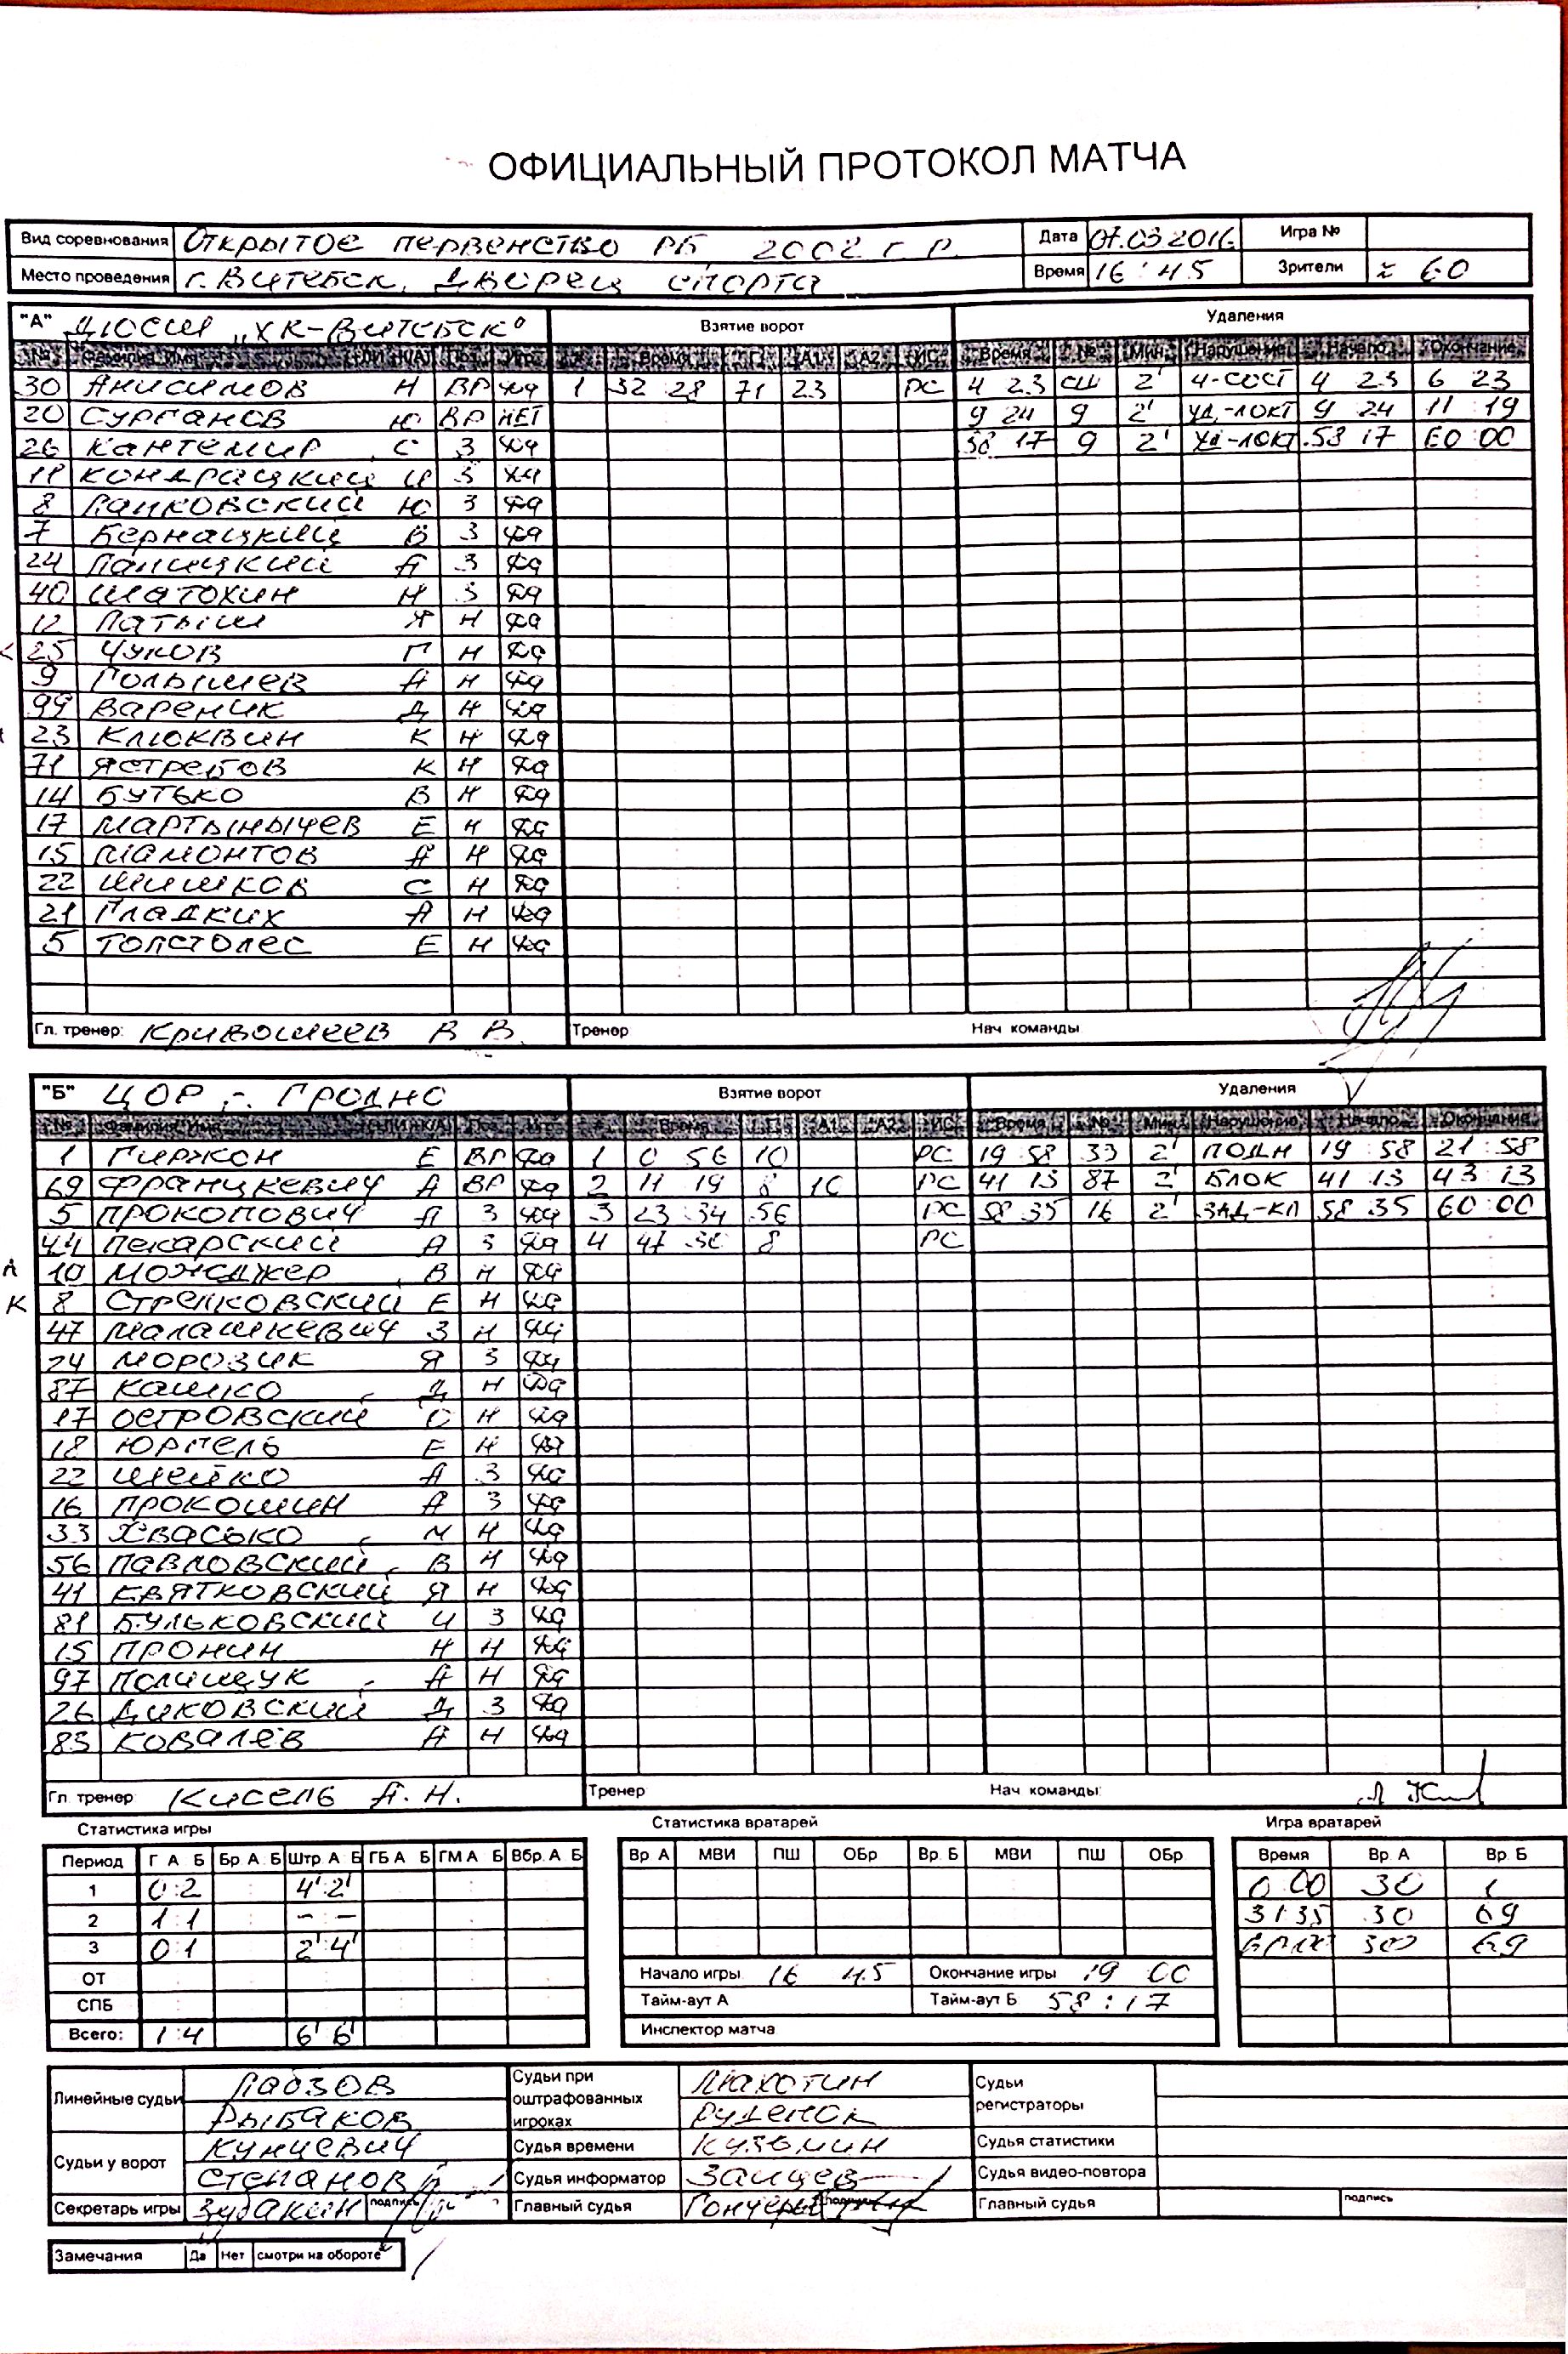 ОФИЦИАЛЬНЫЙ ПРОТОКОЛ МАТЧА
Вид соревнования Открытое первенство РБ 2002 г.р. Дата 07.03.2016 Игра №
Место проведения г. Витебск, Дворец спорта Время 16:45 Зрители ≈ 60
"А" ДЮСШ „ХК-Витебск" Взятие ворот Удаления
№ Фамилия Имя Поз Игр # Время Г А1 А2 ИС Время № Мин Нарушение Начало Окончание
30 Анисимов Н ВР да 1 32 28 71 23 РС 4 23 СШ 2' Ч-СОСТ 4 23 6 23
20 Сурганов Ю ВР НЕТ 9 24 9 2' УД-ЛОКТ 9 24 11 19
26 Кантемир С З да 58 17 9 2' УД-ЛОКТ 58 17 60 00
11 Кондрацкий И З да
8 Панковский Ю З да
7 Бернацкий В З да
24 Палицкий А З да
40 Шатохин Н З да
12 Латыш Я Н да
25 Чуков Г Н да
9 Голышев А Н да
99 Вареник Д Н да
23 Клюквин К Н да
71 Ястребов К Н да
14 Бутько В Н да
17 Мартынычев Е Н да
15 Мамонтов А Н да
22 Шишков С Н да
21 Гладких А Н да
5 Толстолес Е Н да
Гл. тренер: Кривошеев В В. Тренер Нач команды
"Б" ЦОР г. Гродно Взятие ворот Удаления
№ Фамилия Имя Поз Игр # Время Г А1 А2 ИС Время № Мин Нарушение Начало Окончание
1 Гиржон Е ВР да 1 0 56 10 РС 19 58 33 2' ПОДН 19 58 21 58
69 Францкевич А ВР да 2 11 19 8 10 РС 41 13 87 2' БЛОК 41 13 43 13
5 Прокопович Л З да 3 23 34 56 РС 58 35 16 2' ЗАД-КЛ 58 35 60 00
44 Пекарский А З да 4 47 30 8 РС
А 10 Можджер В Н да
К 8 Стрелковский Е Н да
47 Малашкевич З Н да
24 Морозик Я З да
87 Кашко Д Н да
17 Островский О Н да
18 Юргель Е Н да
22 Шейко А З да
16 Прокошин А З да
33 Хвасько М Н да
56 Павловский В Н да
41 Квятковский Я Н да
81 Бульковский И З да
15 Пронин Н Н да
97 Полищук А Н да
26 Диковский Д З да
83 Ковалев А Н да
Гл. тренер: Кисель А.Н. Тренер Нач команды:
Статистика игры Статистика вратарей Игра вратарей
Период Г А Б Бр А Б Штр А Б ГБ А Б ГМ А Б Вбр. А Б Вр. А МВИ ПШ ОБр Вр. Б МВИ ПШ ОБр Время Вр. А Вр. Б
1 0 2 4' 2' 0 00 30 1
2 1 1 – – 31 35 30 69
3 0 1 2' 4' 30 69
ОТ Начало игры 16 45 Окончание игры 19 00
СПБ Тайм-аут А Тайм-аут Б 58:17
Всего: 1 4 6' 6' Инспектор матча
Линейные судьи Судьи при оштрафованных игроках Судьи регистраторы
Рыбаков Руденок
Судьи у ворот Кунцевич Судья времени Кузьмин Судья статистики
Степанов Судья информатор Зайцев Судья видео-повтора
Секретарь игры Зубакин подпись Главный судья подпись Главный судья подпись
Замечания Да Нет смотри на обороте